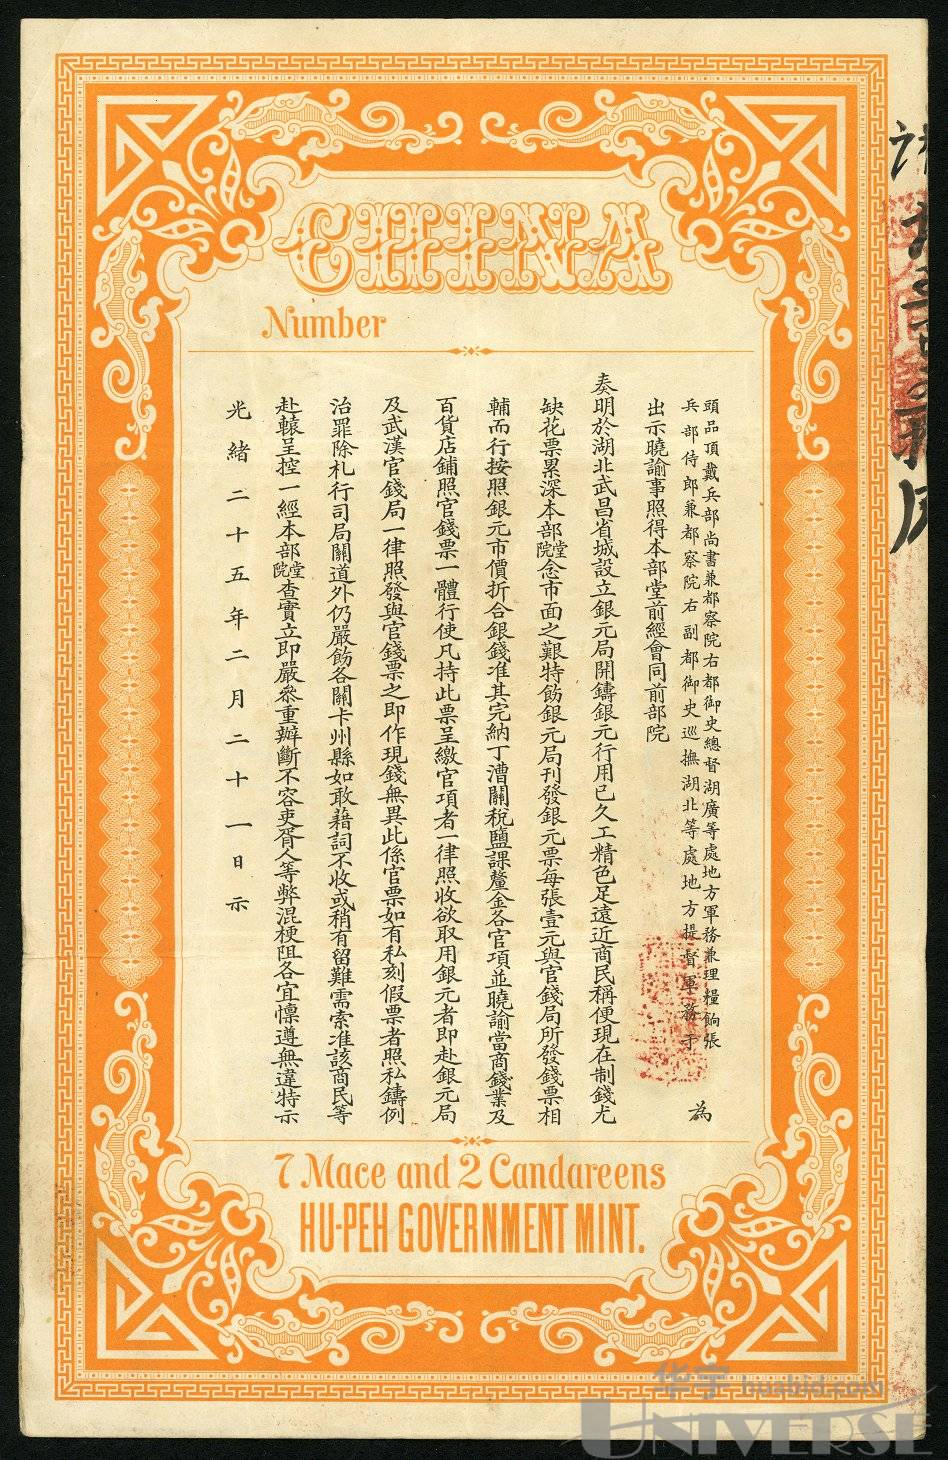 CHINA
Number
頭品頂戴兵部尚書兼都察院右都御史總督湖廣等處地方軍務兼理糧餉張
兵部侍郎兼都察院右副都御史巡撫湖北等處地方提督軍務于
為
出示曉諭事照得本部堂前經會同前部院
奏明於湖北武昌省城設立銀元局開鑄銀元行用已久工精色足遠近商民稱便現在制錢尤
缺花票累深本部堂院念市面之艱特飭銀元局刊發銀元票每張壹元與官錢局所發錢票相
輔而行按照銀元市價折合銀錢准其完納丁漕關稅鹽課釐金各官項並曉諭當商錢業及
百貨店鋪照官錢票一體行使凡持此票呈繳官項者一律照收欲取用銀元者即赴銀元局
及武漢官錢局一律照發與官錢票之即作現錢無異此係官票如有私刻假票者照私鑄例
治罪除札行司局關道外仍嚴飭各關卡州縣如敢藉詞不收或稍有留難需索准該商民等
赴轅呈控一經本部堂院查實立即嚴參重辦斷不容吏胥人等弊混梗阻各宜懍遵無違特示
光緒二十五年二月二十一日示
7 Mace and 2 Candareens
HU-PEH GOVERNMENT MINT.
华宇 huabid.com
UNIVERSE